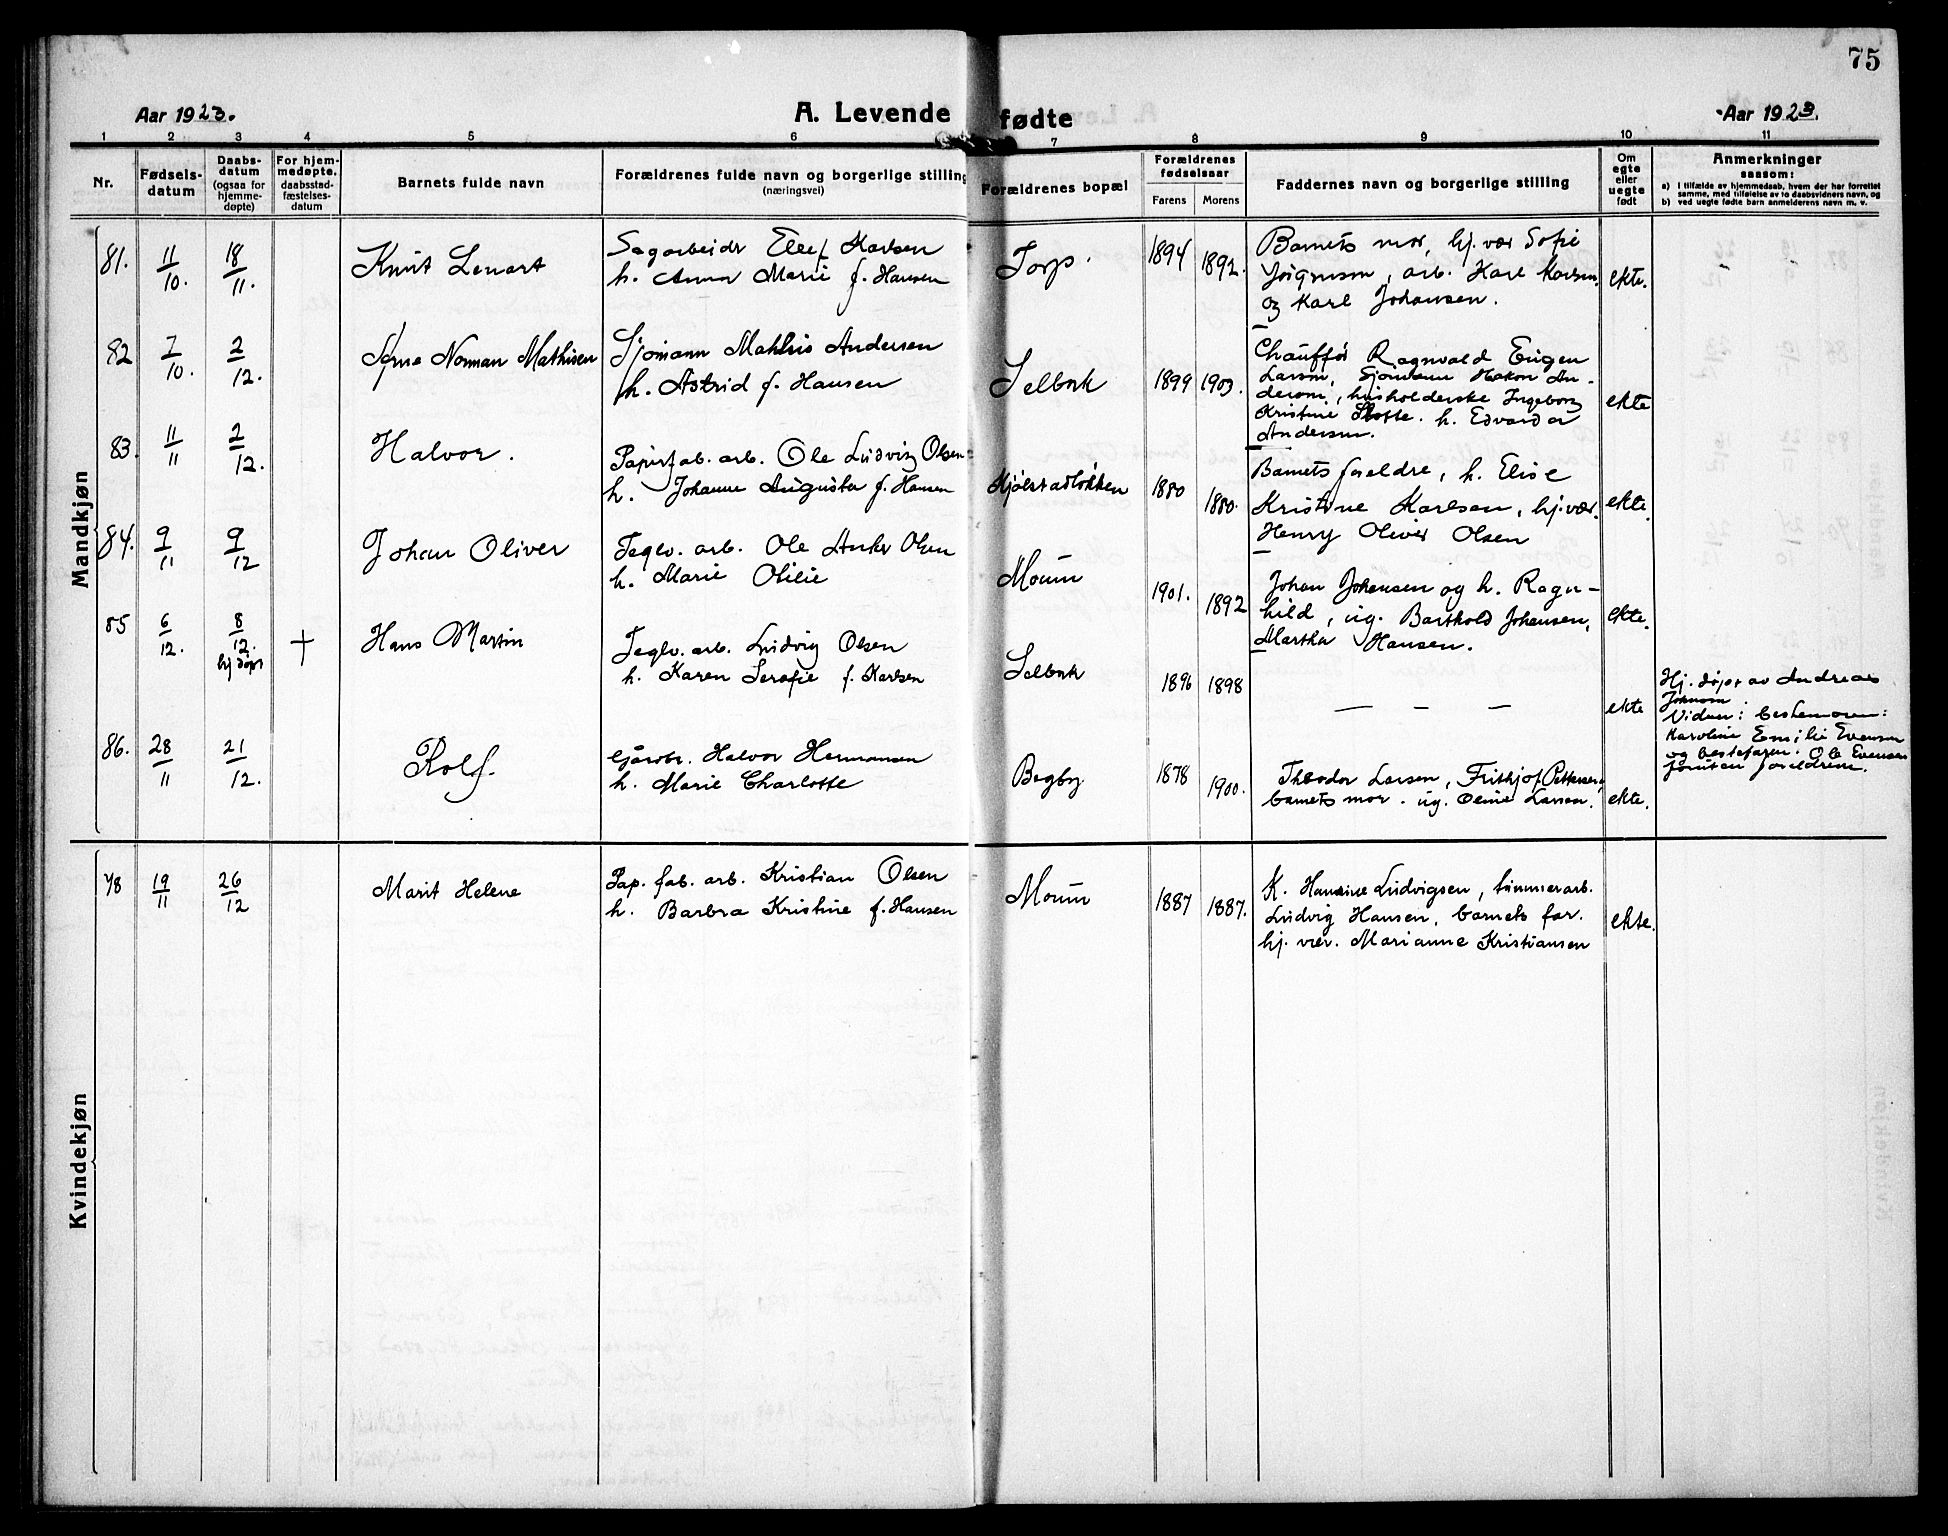 75
Aar 1923.
A. Levende fødte
Aar 1923.
1 2 3 4 5 6 7 8 9 10 11
Nr.
Fødsels-
datum
Daabs-
datum
(ogsaa for
hjemme-
døpte)
For hjem-
medøpte,
daabsstad-
fæstelses-
datum
Barnets fulde navn
Forældrenes fulde navn og borgerlige stilling
(næringsvei)
Forældrenes bopæl
Forældrenes
fødselsaar
Farens Morens
Faddernes navn og borgerlige stilling
Om
egte
eller
uegte
født
Anmerkninger
saasom:
a) i tilfælde av hjemmedaab, hvem der har forrettet
samme, med tilføielse av to daabsvidners navn, og
b) ved uegte fødte barn anmelderens navn m. v.
Mandkjøn
81. 11/10. 18/11. Knut Lenart
Sagarbeider Ellef Karlsen
h. Anna Marie f. Hansen
Torp. 1894 1892.
Barnets mor, hj. vær Sofie
arb. Karl Karlsen
og Karl Johansen.
ekte.
82 7/10. 2/12. Arne Norman Mathisen
Sjømann Mathis Andersen
h. Astrid f. Hansen
Selbak 1899 1903.
Chauffør Ragnvald Eugen
Larsen, Sjømann Hakon An-
dersen, husholderske Ingeborg
Kristine h. Edvarda
Andersen.
ekte
83. 11/11 2/12. Halvor.
Papirfab. arb. Ole Ludvig Olsen
h. Johanne Augusta f. Hansen
Kjølstadløkken 1880 1880.
Barnets foreldre, h. Elise
Kristine Karlsen, hj. vær.
Henry Oliver Olsen
ekte.
84. 9/11 9/12 Johan Oliver
Teglv. arb. Ole Anker Olsen
h. Marie Otilie
Moum 1901. 1892
Johan Johansen og h. Ragn-
hild, ug. Barthold Johansen,
Martha Hansen.
ekte.
85 6/12. 8/12. hj. døpt † Hans Martin
Teglv. arb. Ludvig Olsen
h. Karen Serafie f. Karlsen
Selbak 1896 1898
— — —
ekte
Hj. døpt av Andreas
Johnsen
Vidner: bestemoren:
Karoline Emilie Evensen
og bestefaren. Ole Evensen
foruten foreldrene.
86. 28/11 21/12. Rolf.
Gårdbr. Halvor Hermansen
h. Marie Charlotte
Begby 1878 1900.
Theodor Larsen, Frithjof Pettersen,
barnets mor. ug. Oline Larsen.
ekte.
Kvindekjøn
78 19/11 26/12 Marit Helene
Pap. fab. arb. Kristian Olsen
h. Barbra Kristine f. Hansen
Moum 1887 1887.
K. Hansine Ludvigsen, tømmerarb.
Ludvig Hansen, barnets far.
hj. vær. Marianne Kristiansen
ekte.